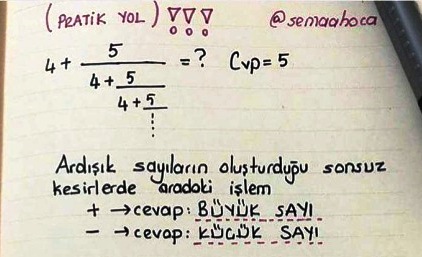 (PRATİK YOL) !!! @semaahoca
4 + 5 = ? Cvp = 5
4 + 5
4 + 5
⋮
Ardışık sayıların oluşturduğu sonsuz
kesirlerde aradaki işlem
+ → cevap: BÜYÜK SAYI
− → cevap: KÜÇÜK SAYI